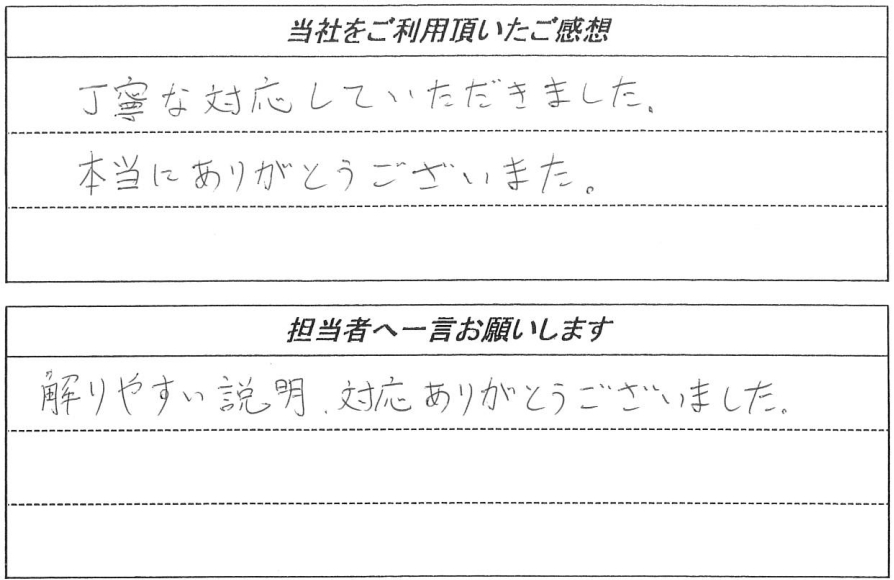 当社をご利用頂いたご感想
丁寧な対応していただきました。
本当にありがとうございまた。
担当者へ一言お願いします
解りやすい説明、対応ありがとうございました。